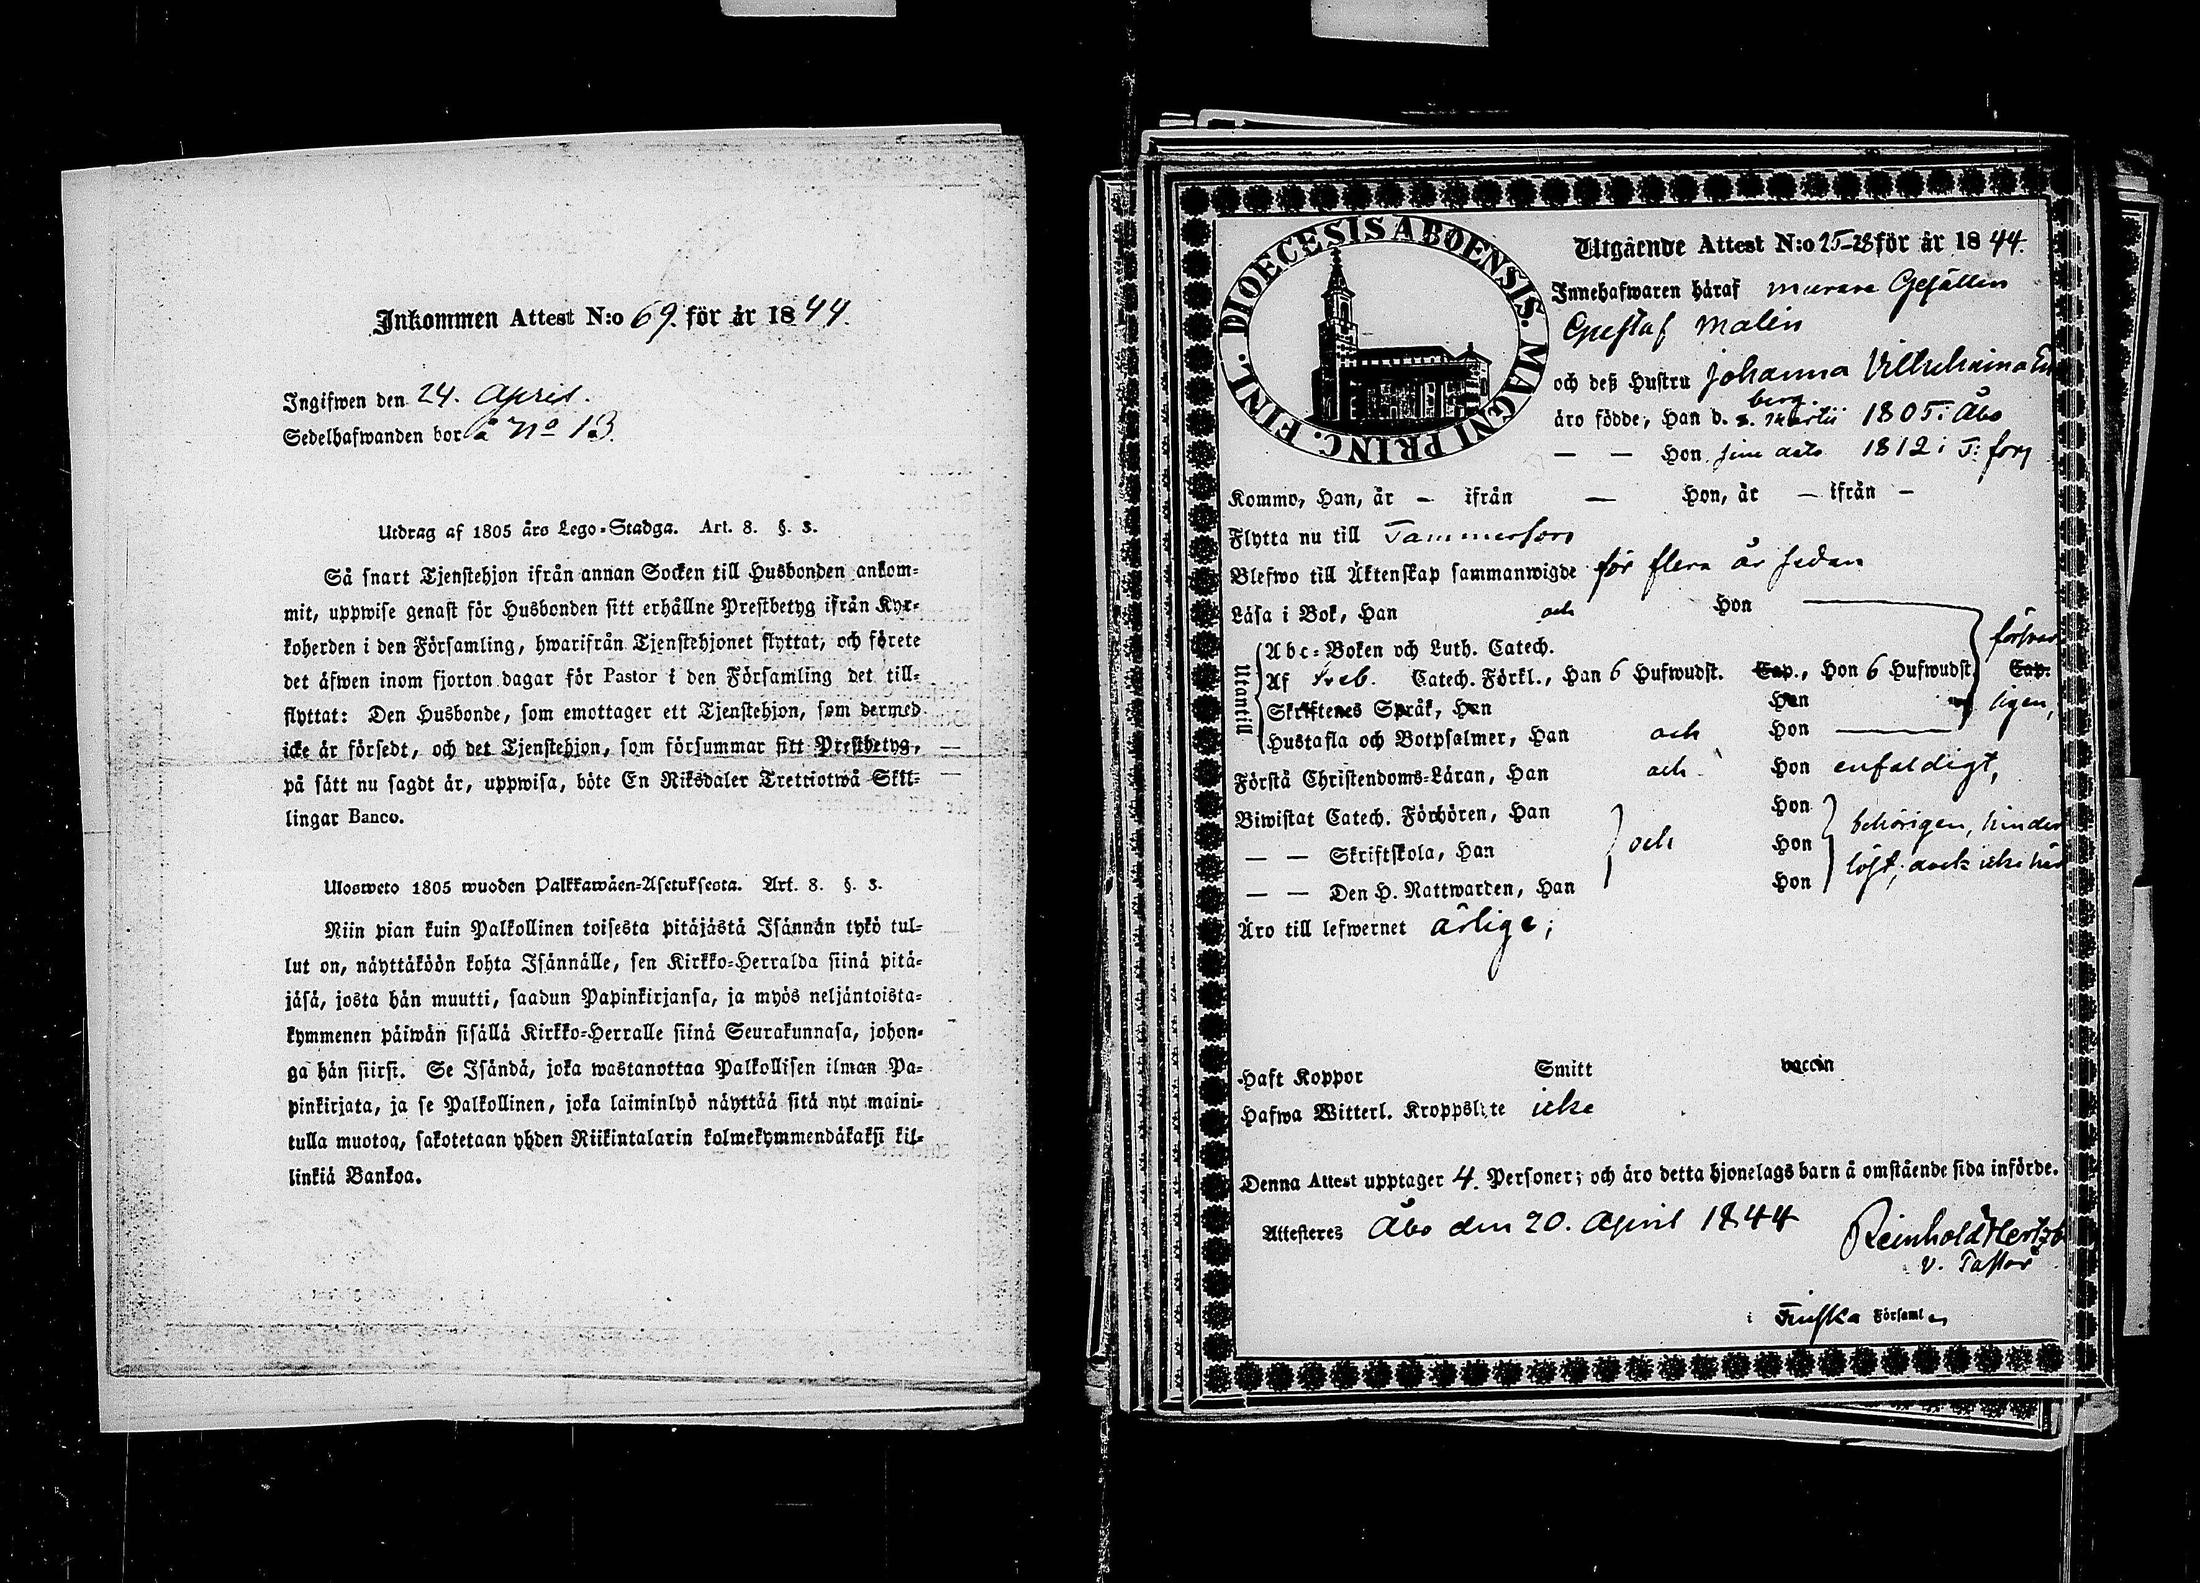 Inkommen Attest N:o 69. för år 1844.
Ingifwen den 24. April.
Sedelhafwanden bor å No 13.
Utdrag af 1805 års Lego-Stadga. Art. 8. §. 3.
Så snart Tjenstehjon ifrån annan Socken till Husbonden ankom-
mit, uppwise genast för Husbonden sitt erhållne Prestbetyg ifrån Kyr-
koherden i den Församling, hwarifrån Tjenstehjonet flyttat, och förete
det äfwen inom fjorton dagar för Pastor i den Församling det till-
flyttat: Den Husbonde, som emottager ett Tjenstehjon, som dermed
icke är försedt, och det Tjenstehjon, som försummar sitt Prestbetyg,
på sätt nu sagdt är, uppwisa, böte En Riksdaler Trettiotwå Skil-
lingar Banco.
Ulosweto 1805 wuoden Palkkawäen-Asetuksesta. Art. 8. §. 3.
Niin pian kuin Palkollinen toisesta pitäjästä Isännän tykö tul-
lut on, näyttäköön kohta Isännälle, sen Kirkko-Herralda siinä pitä-
jäsä, josta hän muutti, saadun Papinkirjansa, ja myös neljäntoista-
kymmenen päiwän sisällä Kirkko-Herralle siinä Seurakunnasa, johon-
ga hän siirsi. Se Isändä, joka wastanottaa Palkollisen ilman Pa-
pinkirjata, ja se Palkollinen, joka laiminlyö näyttää sitä nyt maini-
tulla muotoa, sakotetaan yhden Riikintalarin kolmekymmendäkaksi kil-
linkiä Bankoa.
DIOECESIS ABOENSIS. MAGNI PRINC. FINL.
Utgående Attest N:o 25-28 för år 1844.
Innehafwaren häraf murare Gesällen
Gustaf Malin
och deß Hustru Johanna Vilhelmina
berg.
äro födde, Han d. Martii 1805 i Åbo
— — Hon sine dato 1812 i T: fors
Kommo, Han, år — ifrån — Hon, år — ifrån —
Flytta nu till Tammerfors
Blefwo till Äktenskap sammanwigde för flera år sedan
Läsa i Bok, Han och Hon
Utantill
Abc-Boken och Luth. Catech.
Af Sveb. Catech. Förkl., Han 6 Hufwudst. Cap., Hon 6 Hufwudst. Cap.
Skriftenes Språk, Han Hon ligen,
Hustafla och Botpsalmer, Han och Hon
Förstå Christendoms-Läran, Han och Hon enfaldigt,
Biwistat Catech. Förhören, Han Hon behörigen, hinder
— — Skriftskola, Han och Hon löst, dock icke här
— — Den H. Nattwarden, Han Hon
Äro till lefwernet ärlige;
Haft Koppor Smitt vaccin
Hafwa Witterl. Kroppslyte icke
Denna Attest upptager 4. Personer; och äro detta hjonelags barn å omstående sida införde.
Attesteres Åbo den 20. April 1844
Reinhold Hertzb
v. Pastor
i Finska Församl